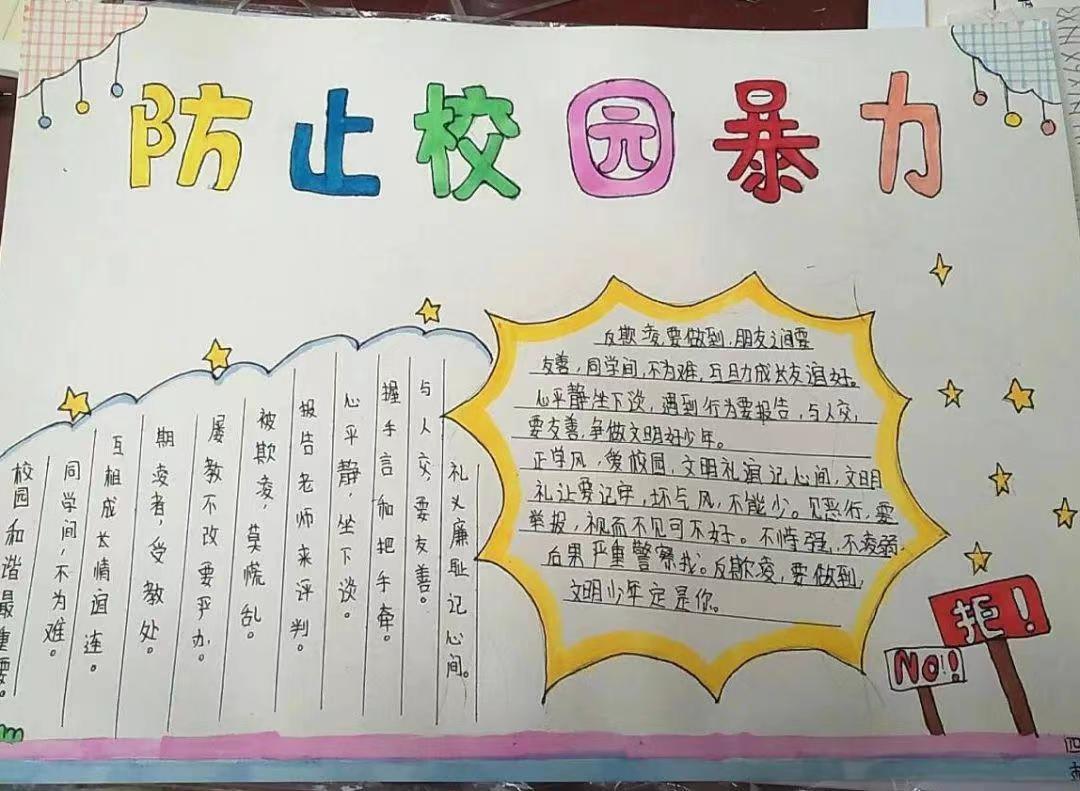 防止校园暴力
校园和谐最重要。
同学间,不为难。
互相成长情谊连。
期凌者,受教处。
屡教不改要严办。
被欺凌,莫慌乱。
报告老师来评判。
心平静,坐下谈。
握手言和把手牵。
与人交,要友善。
礼义廉耻记心间。
反欺凌,要做到,朋友之间要
友善,同学间,不为难,互助成长友谊好。
心平静坐下谈,遇到行为要报告,与人交,
要友善,争做文明好少年。
正学风,爱校园,文明礼谊记心间,文明
礼让要记守,坏气风,不能少。见恶行,要
举报,视而不见可不好。不恃强,不凌弱,
后果严重警察找。反欺凌,要做到,
文明少年定是你。
拒!
NO!!
四